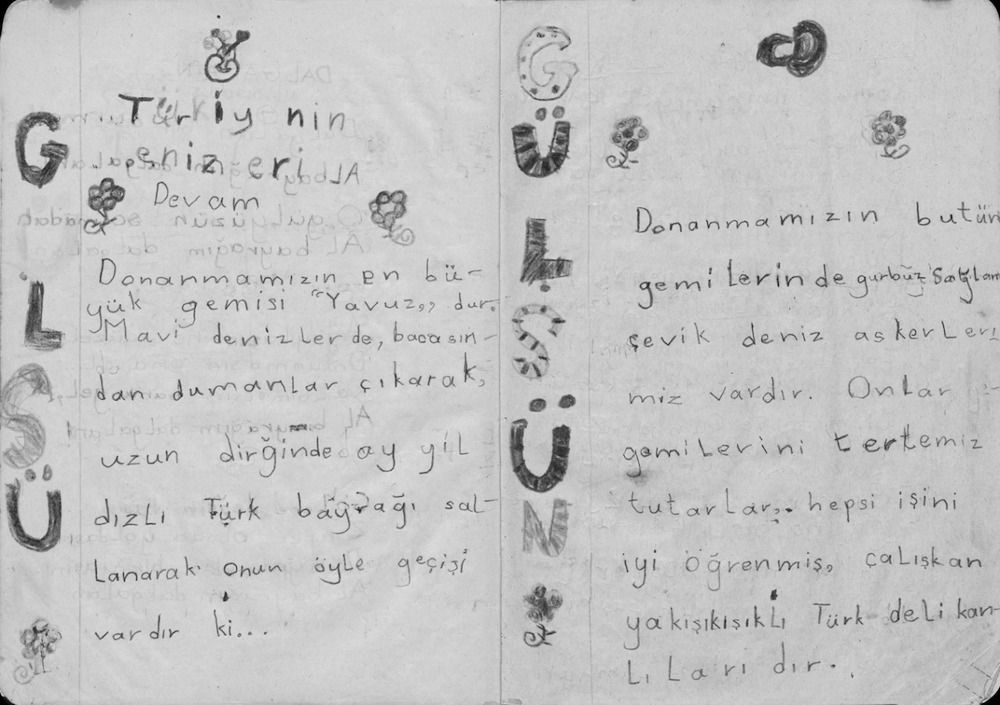 G
Ü
L
S
Ü
Türkiy nin
enizleri
Devam
Donanmamızın en bü-
yük gemisi "Yavuz,, dur.
Mavi denizlerde, bacasın-
dan dumanlar çıkarak,
uzun dirğinde ay yıl
dızlı Türk bayrağı sal-
lanarak onun öyle geçişi
vardır ki...
G
Ü
L
S
Ü
N
Donanmamızın butün
gemilerinde gurbüz sağlam
çevik deniz askerleri
miz vardır. Onlar
gemilerini tertemiz
tutarlar, hepsi işini
iyi öğrenmiş, çalışkan
yakışıkışıklı Türk delikan-
lıları dır.